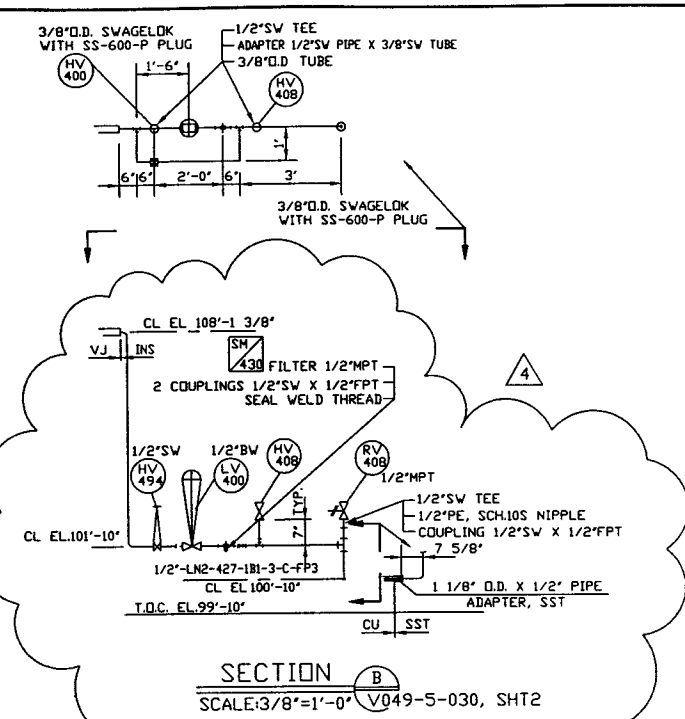 3/8"O.D. SWAGELOK
WITH SS-600-P PLUG
1/2"SW TEE
ADAPTER 1/2"SW PIPE X 3/8"SW TUBE
3/8"O.D TUBE
HV
400
1'-6"
HV
408
1'
6"
6"
2'-0"
6"
3'
3/8"O.D. SWAGELOK
WITH SS-600-P PLUG
CL EL 108'-1 3/8"
VJ
INS
SM
430
FILTER 1/2"MPT
2 COUPLINGS 1/2"SW X 1/2"FPT
SEAL WELD THREAD
4
1/2"SW
HV
494
1/2"BW
LV
400
HV
408
RV
408
1/2"MPT
7" TYP.
1/2"SW TEE
1/2"PE, SCH.10S NIPPLE
COUPLING 1/2"SW X 1/2"FPT
7 5/8"
CL EL.101'-10"
1/2"-LN2-427-1B1-3-C-FP3
CL EL 100'-10"
1 1/8" O.D. X 1/2" PIPE
ADAPTER, SST
T.O.C. EL.99'-10"
CU
SST
SECTION
B
SCALE:3/8"=1'-0"
V049-5-030, SHT2